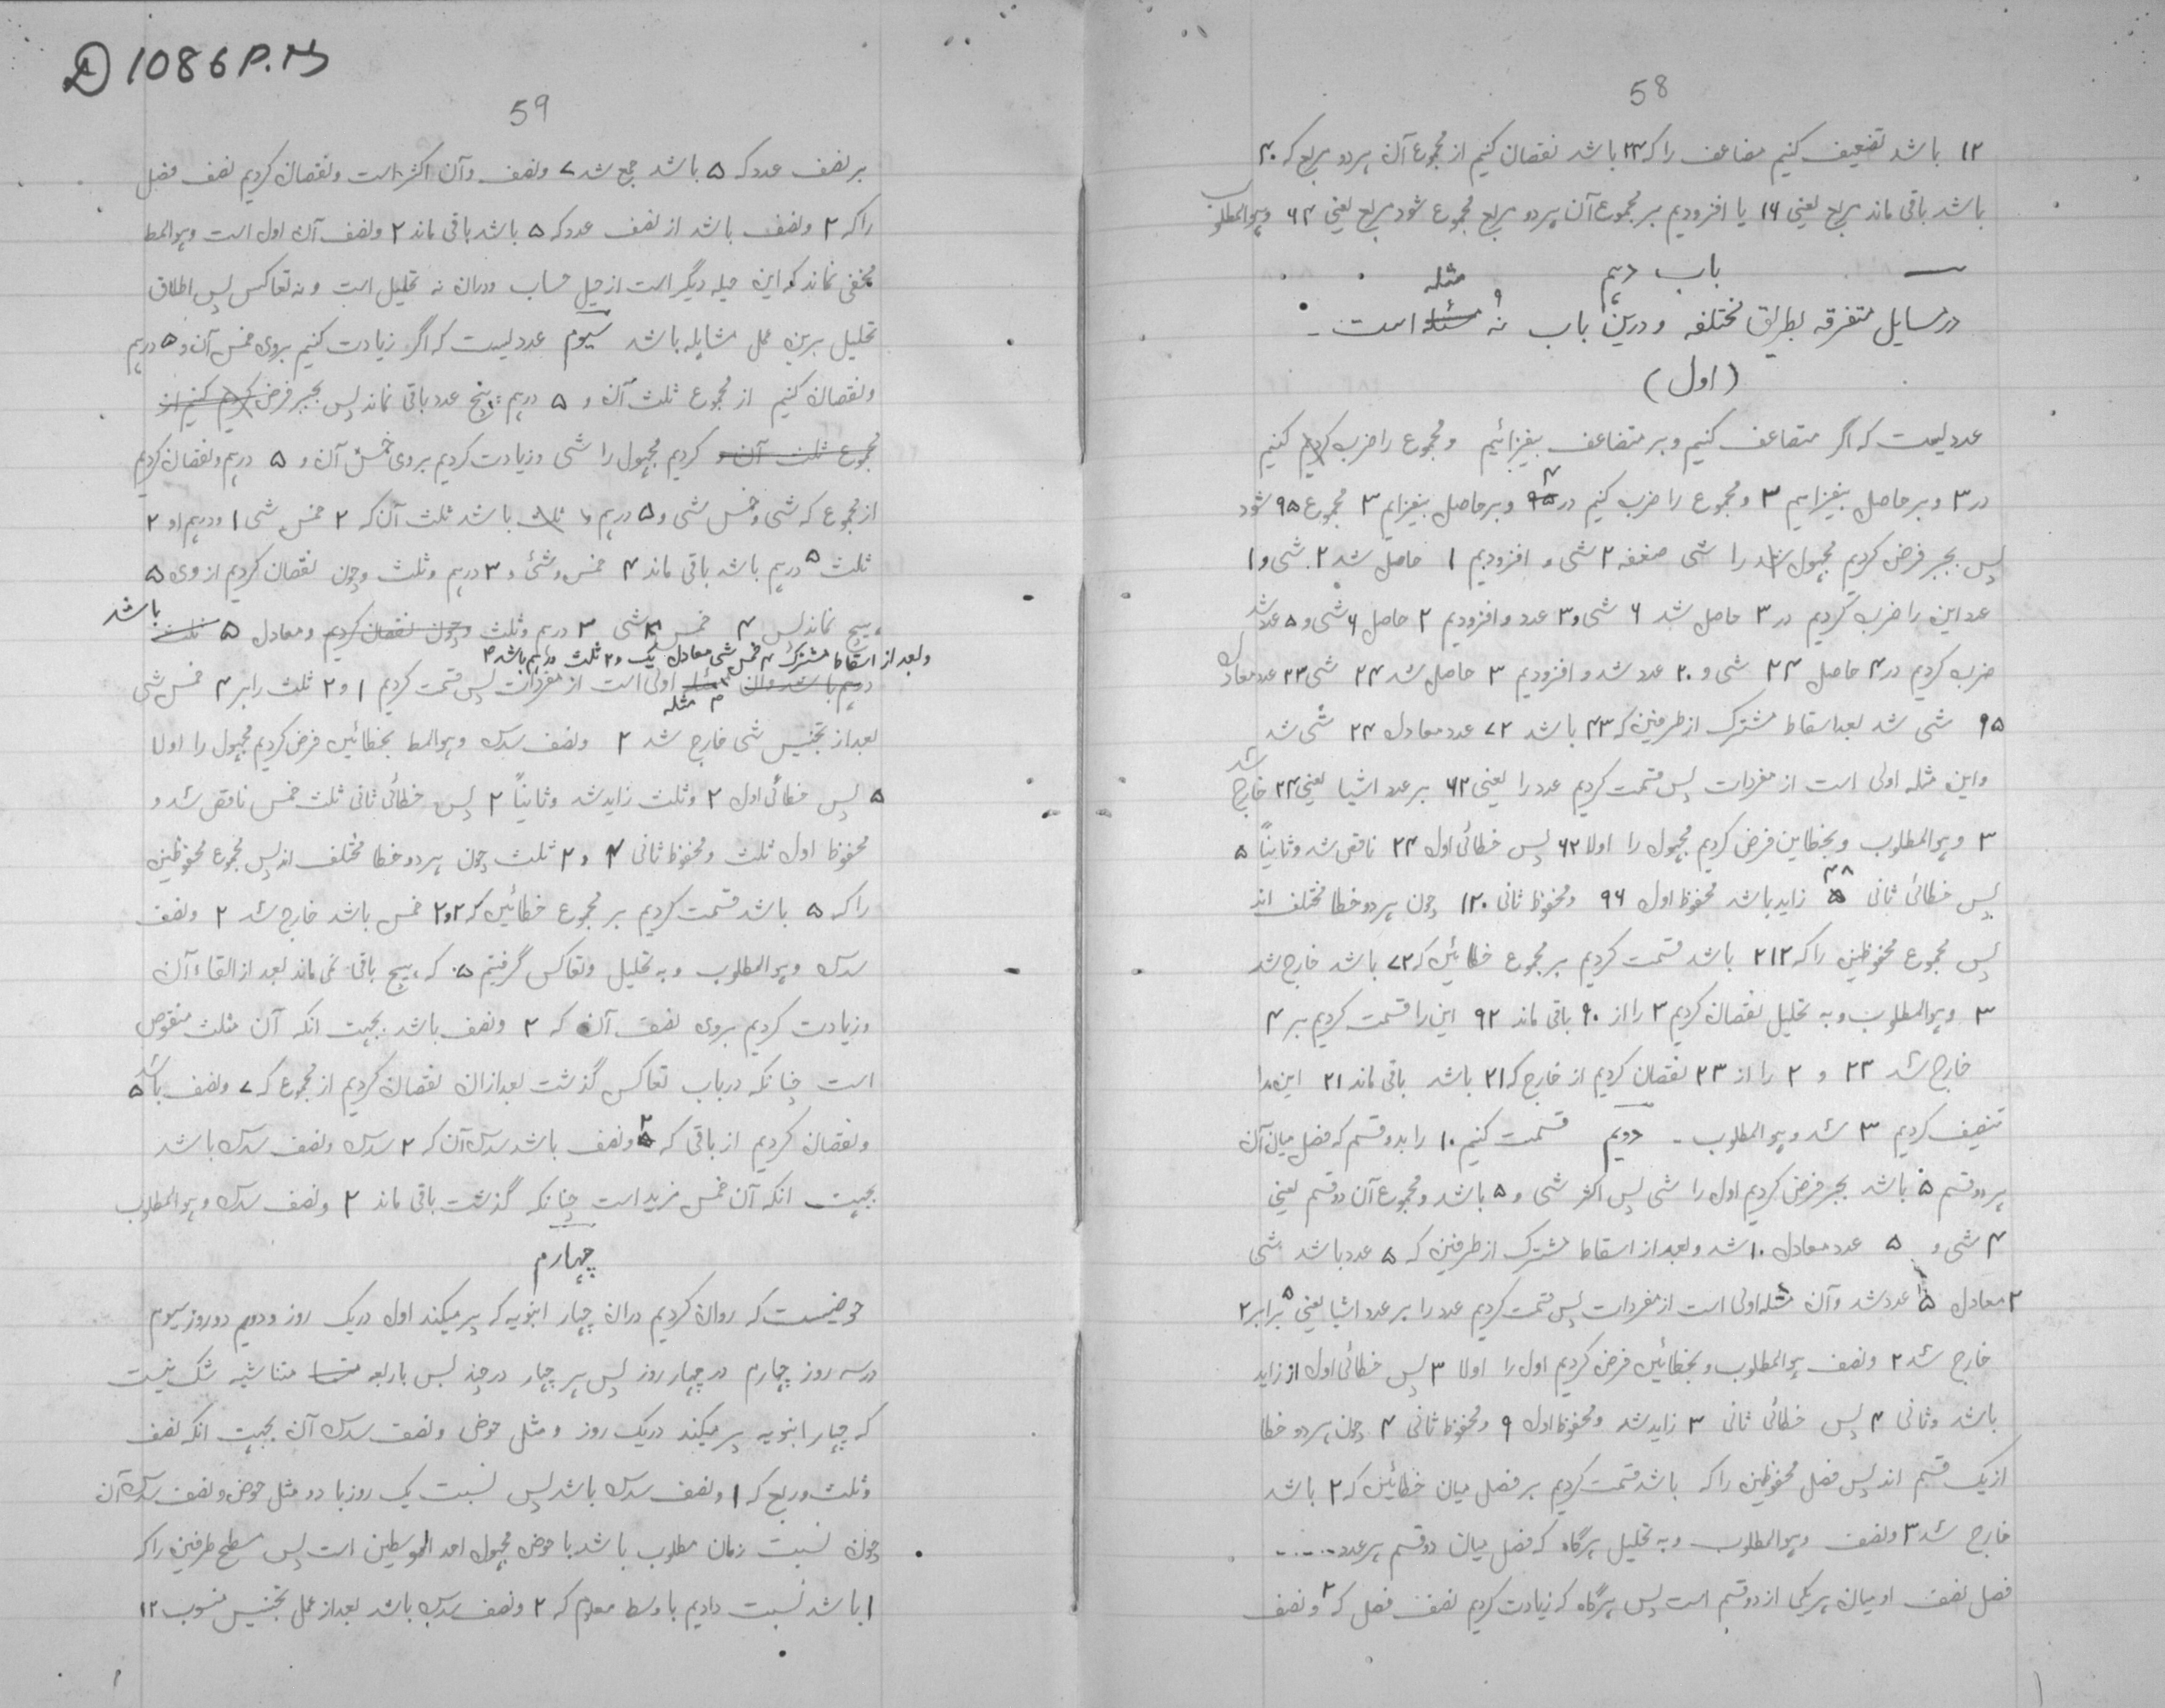 58
۱۲ باشد تضعیف کنیم مضاعف را که ۲۴ باشد نقصان کنیم از مجموع آن هر دو مربع که ۴۰
باشد باقی ماند مربع یعنی ۱۶ یا افزودیم بر مجموع آن هر دو مربع مجموع شود مربع یعنی ۶۴ وهوالمطلوب
باب دهم
در مسایل متفرقه بطریق مختلفه و درین باب نه ۹ مثله است -
(اول)
عددیست که اگر متضاعف کنیم و بر متضاعف بیفزائیم و مجموع را ضرب کنیم
در ۳ و بر حاصل بیفزاییم ۳ و مجموع را ضرب کنیم در ۴ و بر حاصل بیفزایم ۳ مجموع ۹۵ شود
پس بجبر فرض کردیم مجهول را شی ضعفه ۲ شی و افزودیم ۱ حاصل شد ۲ شی و ۱
عدد این را ضرب کردیم در ۳ حاصل شد ۶ شی و ۳ عدد و افزودیم ۲ حاصل ۶ شی و ۵ عدد شد
ضرب کردیم در ۴ حاصل ۲۴ شی و ۲۰ عدد شد و افزودیم ۳ حاصل شد ۲۴ شی ۲۳ عدد معادل
۹۵ شی شد بعد اسقاط مشترک از طرفین که ۲۳ باشد ۷۲ عدد معادل ۲۴ شی شد
واین مثله اولی است از مفردات پس قسمت کردیم عدد را یعنی ۷۲ بر عدد اشیا یعنی ۲۴ خارج شد
۳ وهوالمطلوب و بخطاین فرض کردیم مجهول را اولا ۲ پس خطائی اول ۲۴ ناقص شد وثانیاً ۵
پس خطائی ثانی ۴۸ زاید باشد محفوظ اول ۹۶ ومحفوظ ثانی ۱۲۰ چون هر دو خطا مختلف اند
پس مجموع محفوظین را که ۲۱۲ باشد قسمت کردیم بر مجموع خطائین که ۷۲ باشد خارج شد
۳ وهوالمطلوب و به تحلیل نقصان کردیم ۳ را از ۹۰ باقی ماند ۹۲ این را قسمت کردیم بر ۴
خارج شد ۲۳ و ۲ را از ۲۳ نقصان کردیم از خارج که ۲۱ باشد باقی ماند ۲۱ این را
تنصیف کردیم ۳ شد وهوالمطلوب - دویم قسمت کنیم ۱۰ را بدو قسم که فضل میان آن
هر دو قسم ۵ باشد بجبر فرض کردیم اول را شی پس اکثر شی و ۵ باشد و مجموع آن دو قسم یعنی
۲ شی و ۵ عدد معادل ۱۰ شد و بعد از اسقاط مشترک از طرفین که ۵ عدد باشد شی
۲ معادل ۵ عدد شد وآن مثله اولی است از مفردات پس قسمت کردیم عدد را بر عدد اشیا یعنی ۵ برابر ۲
خارج شد ۲ ونصف هوالمطلوب و بخطائین فرض کردیم اول را اولا ۳ پس خطائی اول زاید
باشد وثانی ۴ پس خطائی ثانی ۳ زاید شد ومحفوظ اول ۹ ومحفوظ ثانی ۴ چون هر دو خطا
از یک قسم اند پس فضل محفوظین را که باشد قسمت کردیم بر فضل میان خطائین که ۲ باشد
خارج شد ۲ ونصف وهوالمطلوب و به تحلیل هرگاه که فضل میان دو قسم هر عدد ....
فضل نصف او میان هر یکی از دو قسم است پس هرگاه که زیادت کردیم نصف فضل که ۲ ونصف
D 1086 P.M
59
بر نصف عدد که ۵ باشد جمع شد ۷ ونصف وآن اکثر است ونقصان کردیم نصف فضل
را که ۲ ونصف باشد از نصف عدد که ۵ باشد باقی ماند ۲ ونصف آن اول است وهوالمط
مخفی نماند که این حیله دیگر است از حیل حساب و دران نه تحلیل است و نه تعاکس پس اطلاق
تحلیل برین عمل مشابه باشد سیوم عددیست که اگر زیادت کنیم بروی خمس آن و ۵ درهم
ونقصان کنیم از مجموع ثلث آن و ۵ درهم هیچ عدد باقی نماند پس بجبر فرض کردیم کنیم از
مجموع ثلث آن و کردیم مجهول را شی و زیادت کردیم بروی خمس آن و ۵ درهم و نقصان کردیم
از مجموع که شی و خمس شی و ۵ درهم باشد ثلث آن که ۲ خمس شی ۱ و درهم او ۲
ثلث درهم باشد باقی ماند ۴ خمس شی و ۳ درهم وثلث وچون نقصان کردیم از وی ۵
هیچ نماند پس ۴ خمس شی ۳ درهم وثلث وچون نقصان کردیم ومعادل ۵ ثلث باشد
وبعد از اسقاط مشترک ۴ خمس شی معادل یک و ۲ ثلث درهم باشد
درهم باشد وآن مثله اولی است از مفردات پس قسمت کردیم ۱ و ۲ ثلث را بر ۴ خمس شی
بعد از تجنیس شی خارج شد ۲ ونصف سدس وهوالمط بخطائین فرض کردیم مجهول را اولا
۵ پس خطائی اول ۲ وثلث زاید شد وثانیاً ۲ پس خطائی ثانی ثلث خمس ناقص شد و
محفوظ اول ثلث ومحفوظ ثانی ۴ و ۲ ثلث چون هر دو خطا مختلف اند پس مجموع محفوظین
را که ۵ باشد قسمت کردیم بر مجموع خطائین که ۲ و ۲ خمس باشد خارج شد ۲ ونصف
سدس وهوالمطلوب و به تحلیل وتعاکس گرفتیم ۵ که هیچ باقی نمی ماند بعد از القاء آن
وزیادت کردیم بروی نصف آن که ۲ ونصف باشد بجهت انکه آن ثلث منقوص
است چنانکه درباب تعاکس گذشت بعد ازان نقصان کردیم از مجموع که ۷ ونصف باشد ۵
ونقصان کردیم از باقی که ۲ ونصف باشد سدس آن که ۲ سدس ونصف سدس باشد
بجهت انکه آن خمس مزید است چنانکه گذشت باقی ماند ۲ ونصف سدس وهوالمطلوب
چهارم
حوضیست که روان کردیم دران چهار انبوبه که پر میکند اول در یک روز ودویم دو روز سیوم
در سه روز چهارم در چهار روز پس هر چهار در چند پس باربعه متناسبه شک نیست
که چهار انبوبه پر میکند در یک روز و مثل حوض ونصف سدس آن بجهت انکه نصف
وثلث وربع که ۱ ونصف سدس باشد پس نسبت یک روز با دو مثل حوض ونصف سدس آن
چون نسبت زمان مطلوب باشد با حوض مجهول احد الوسطین است پس مسطح طرفین را که
۱ باشد نسبت دادیم با وسط معلوم که ۲ ونصف سدس باشد بعد از عمل تجنیس منسوب ۱۲